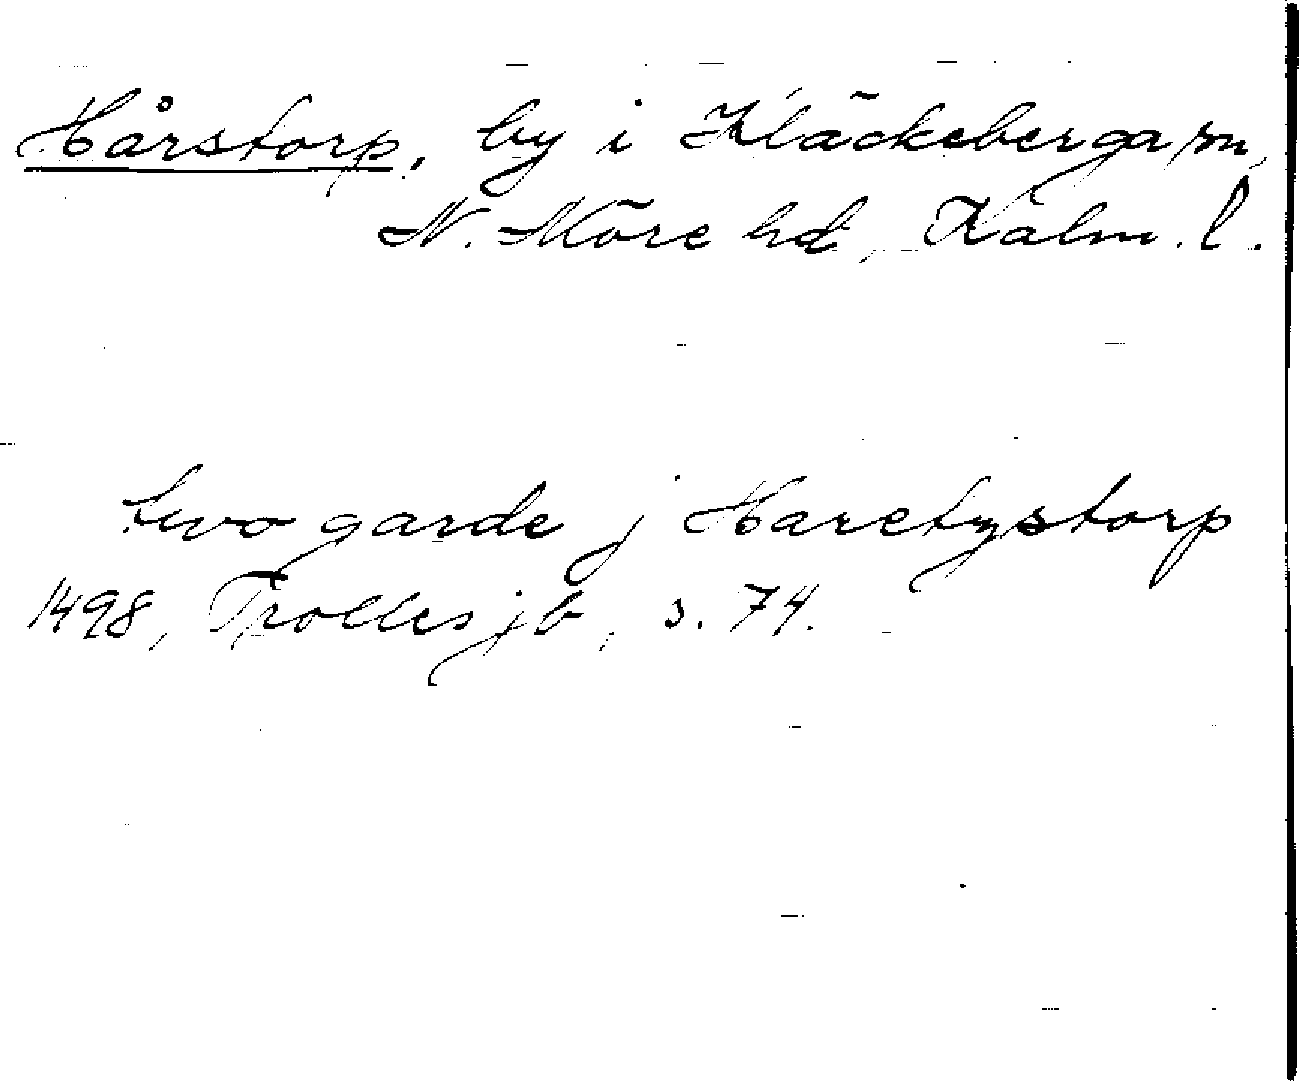 Hårstorp, by i Kläckeberga sn,
N. Möre hd, Kalm. l.
two garde j Haretzstorp
1498, Trolles jb, s. 74.